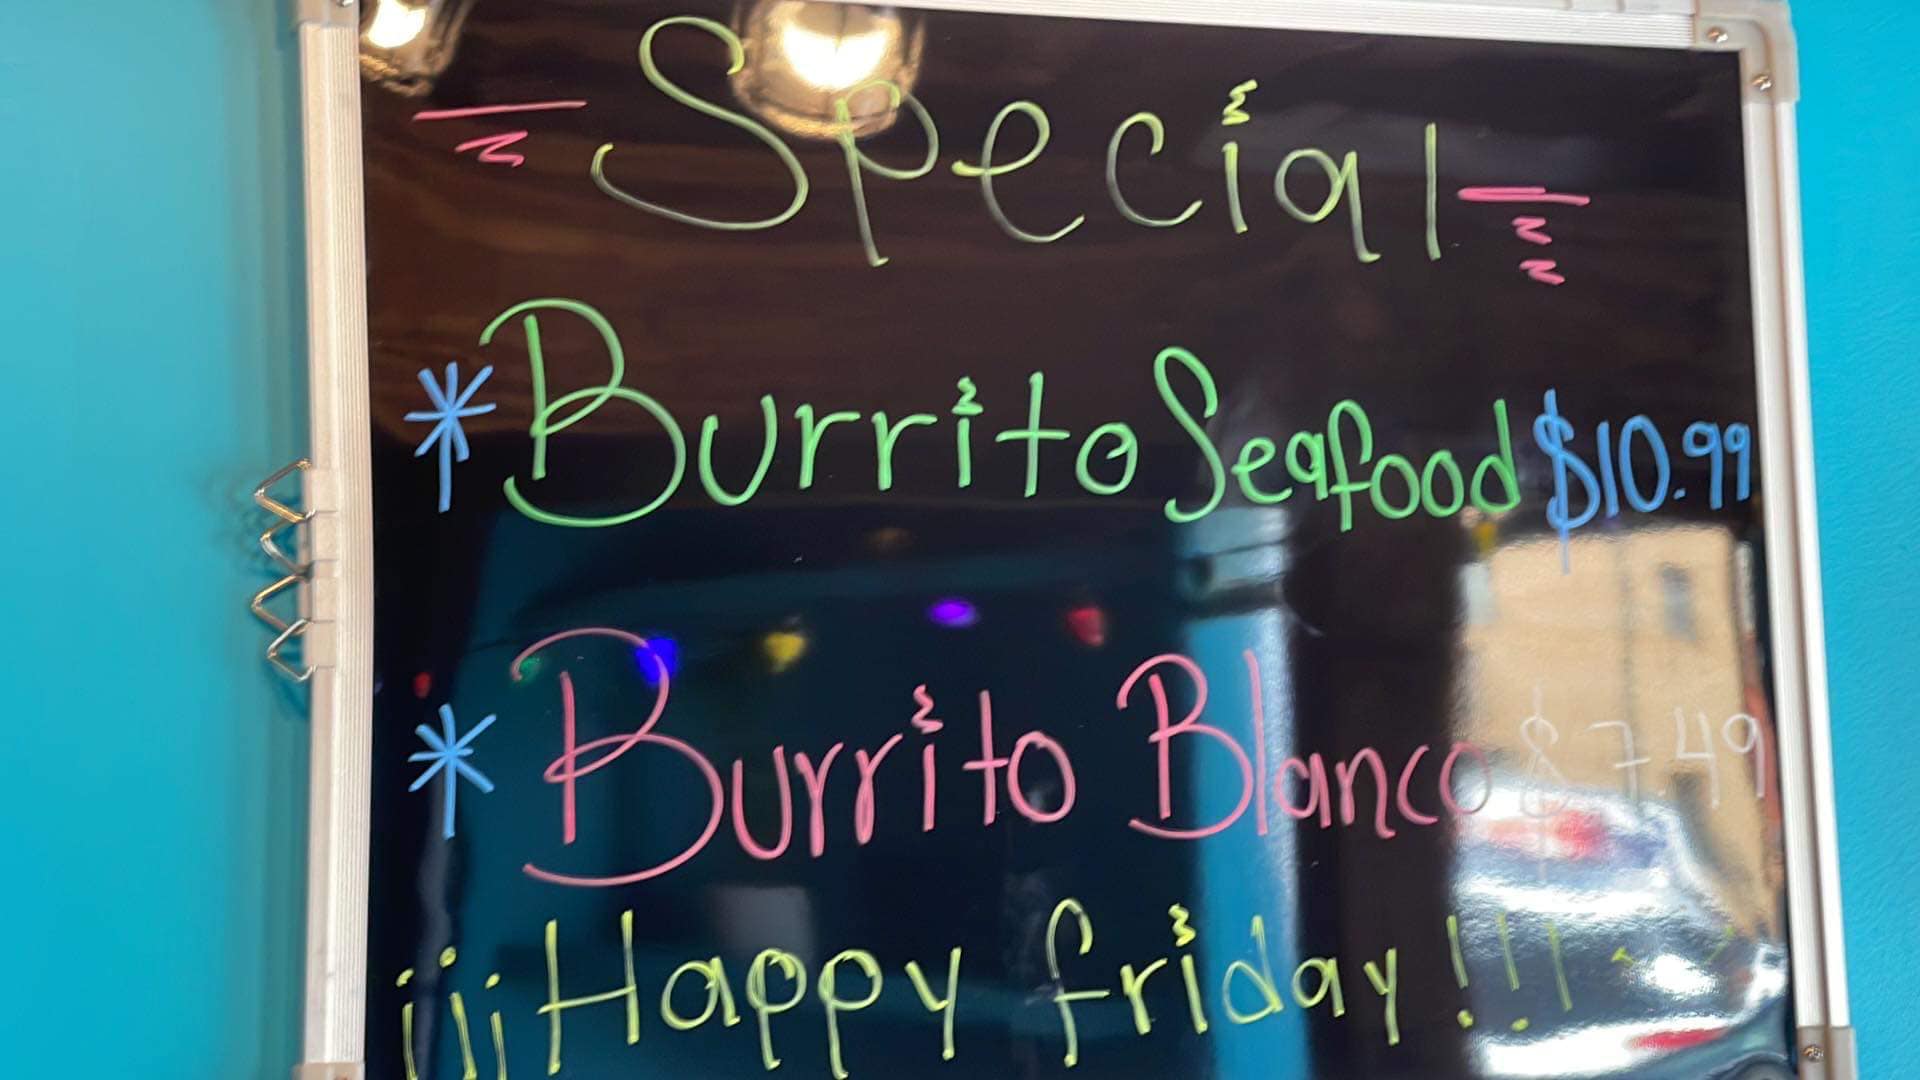 Special
* Burrito Seafood $10.99
* Burrito Blanco $7.49
¡¡¡Happy friday!!!